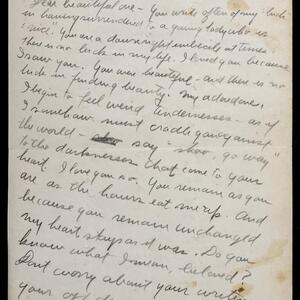 Dear beautiful one - You write often of my "luck
in having surrendered" to a young lady who is
"nice". You are a downright imbecile at times
there is no luck in my life. I loved you because
I saw you. You were beautiful - and there is no
luck in finding beauty. My adored one,
I begin to feel weird tenderness - as if
I somehow must cradle you against
the world - say "shoo, go way"
to the darknesses that come to your
heart. I love you so. You remain as you
are as the hours eat me up. And
because you remain unchanged
my heart stays as it was. Do you
know what I mean, beloved?
Don't worry about your writing
your